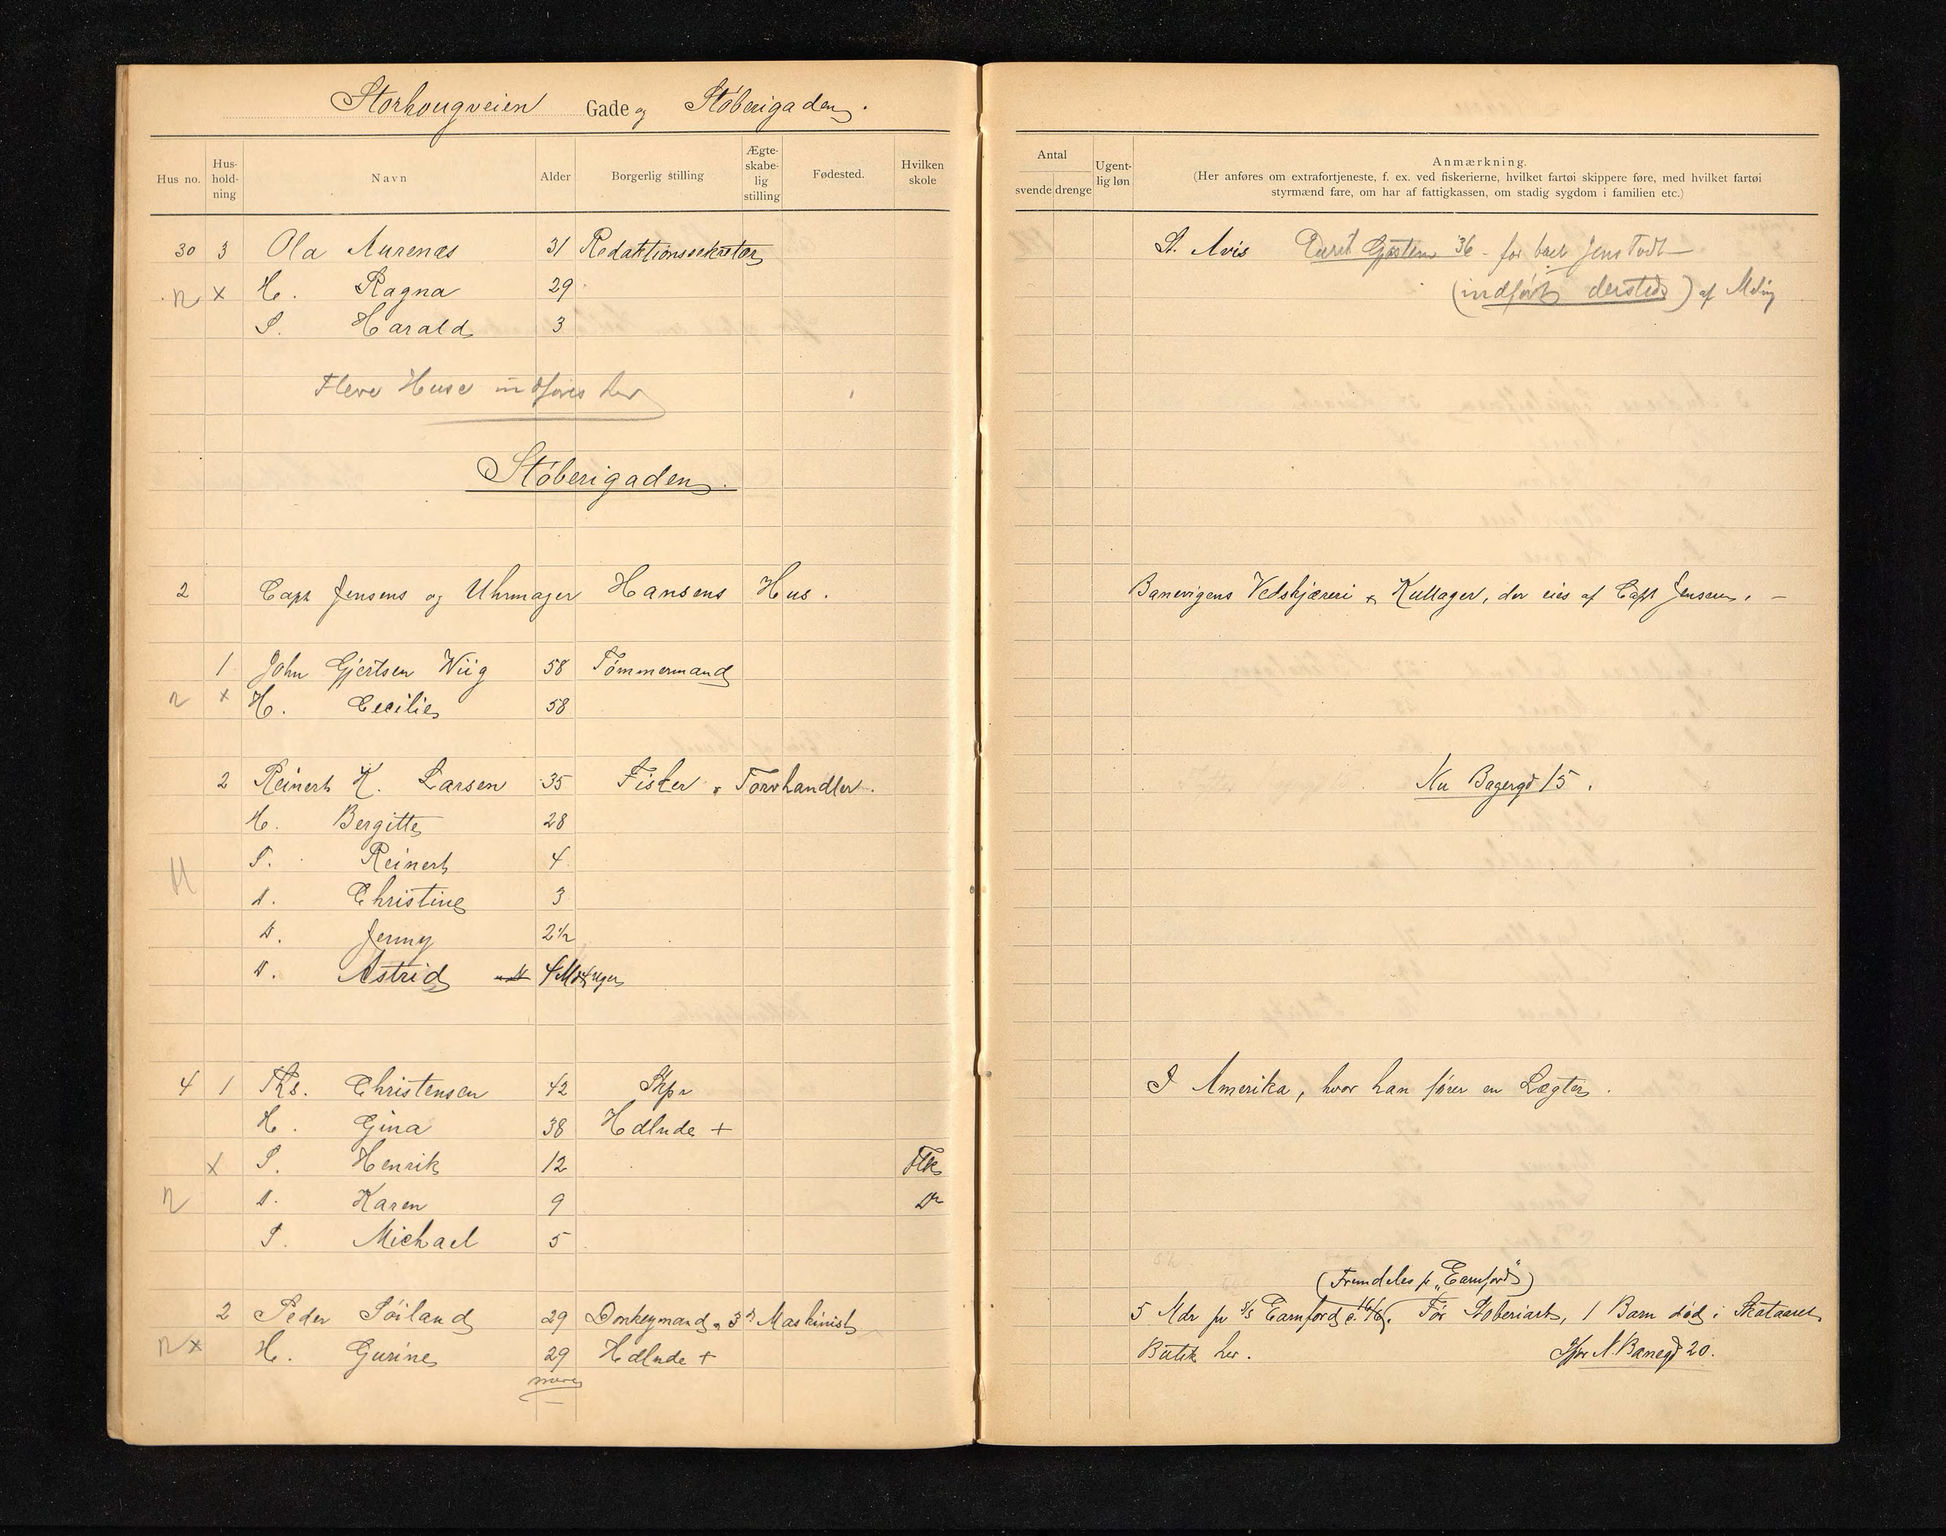 Storhougveien Gade og Støberigaden.
Hus no. Hus-hold-ning Navn Alder Borgerlig stilling Ægte-skabe-lig stilling Fødested. Hvilken skole
Antal svende drenge Ugent-lig løn Anmærkning.
(Her anføres om extrafortjeneste, f. ex. ved fiskerierne, hvilket fartøi skippere føre, med hvilket fartøi
styrmænd fare, om har af fattigkassen, om stadig sygdom i familien etc.)
30 3 Ola Aurenæs 31 Redaktionssekretær St. Avis 36 - for
n x H. Ragna 29 (indført dersteds) af
S. Harald 3
Flere Huse indføres her
Støberigaden.
2 Capt Jensens og Uhrmager Hansens Hus. Banevigens Vedskjæreri & Kullager, der eies af Capt Jensen. -
1 John Gjertsen Wiig 58 Tømmermand
n x H. Cecilie 58
2 Reinert K. Larsen 35 Fisker & Torvhandler. Nu Bagergd 15.
H. Bergitte 28
S. Reinert 4
D. Christine 3
D. Jenny 2½
D. Astrid
4 1 Ths. Christensen 42 Skpr I Amerika, hvor han fører en Lægter.
H. Gina 38 Hdlnde +
x S. Henrik 12 Flk
n D. Karen 9 Do
S. Michael 5
(Fremdeles pr „Earnford")
2 Peder Söiland 29 Donkeymand & 3d Maskinist 5 Mdr pr S/S Earnford Før Støberiarb, 1 Barn død i
n x H. Gurine 29 Hdlnde + Butik her. Ifjor N. Banegd 20.
mere